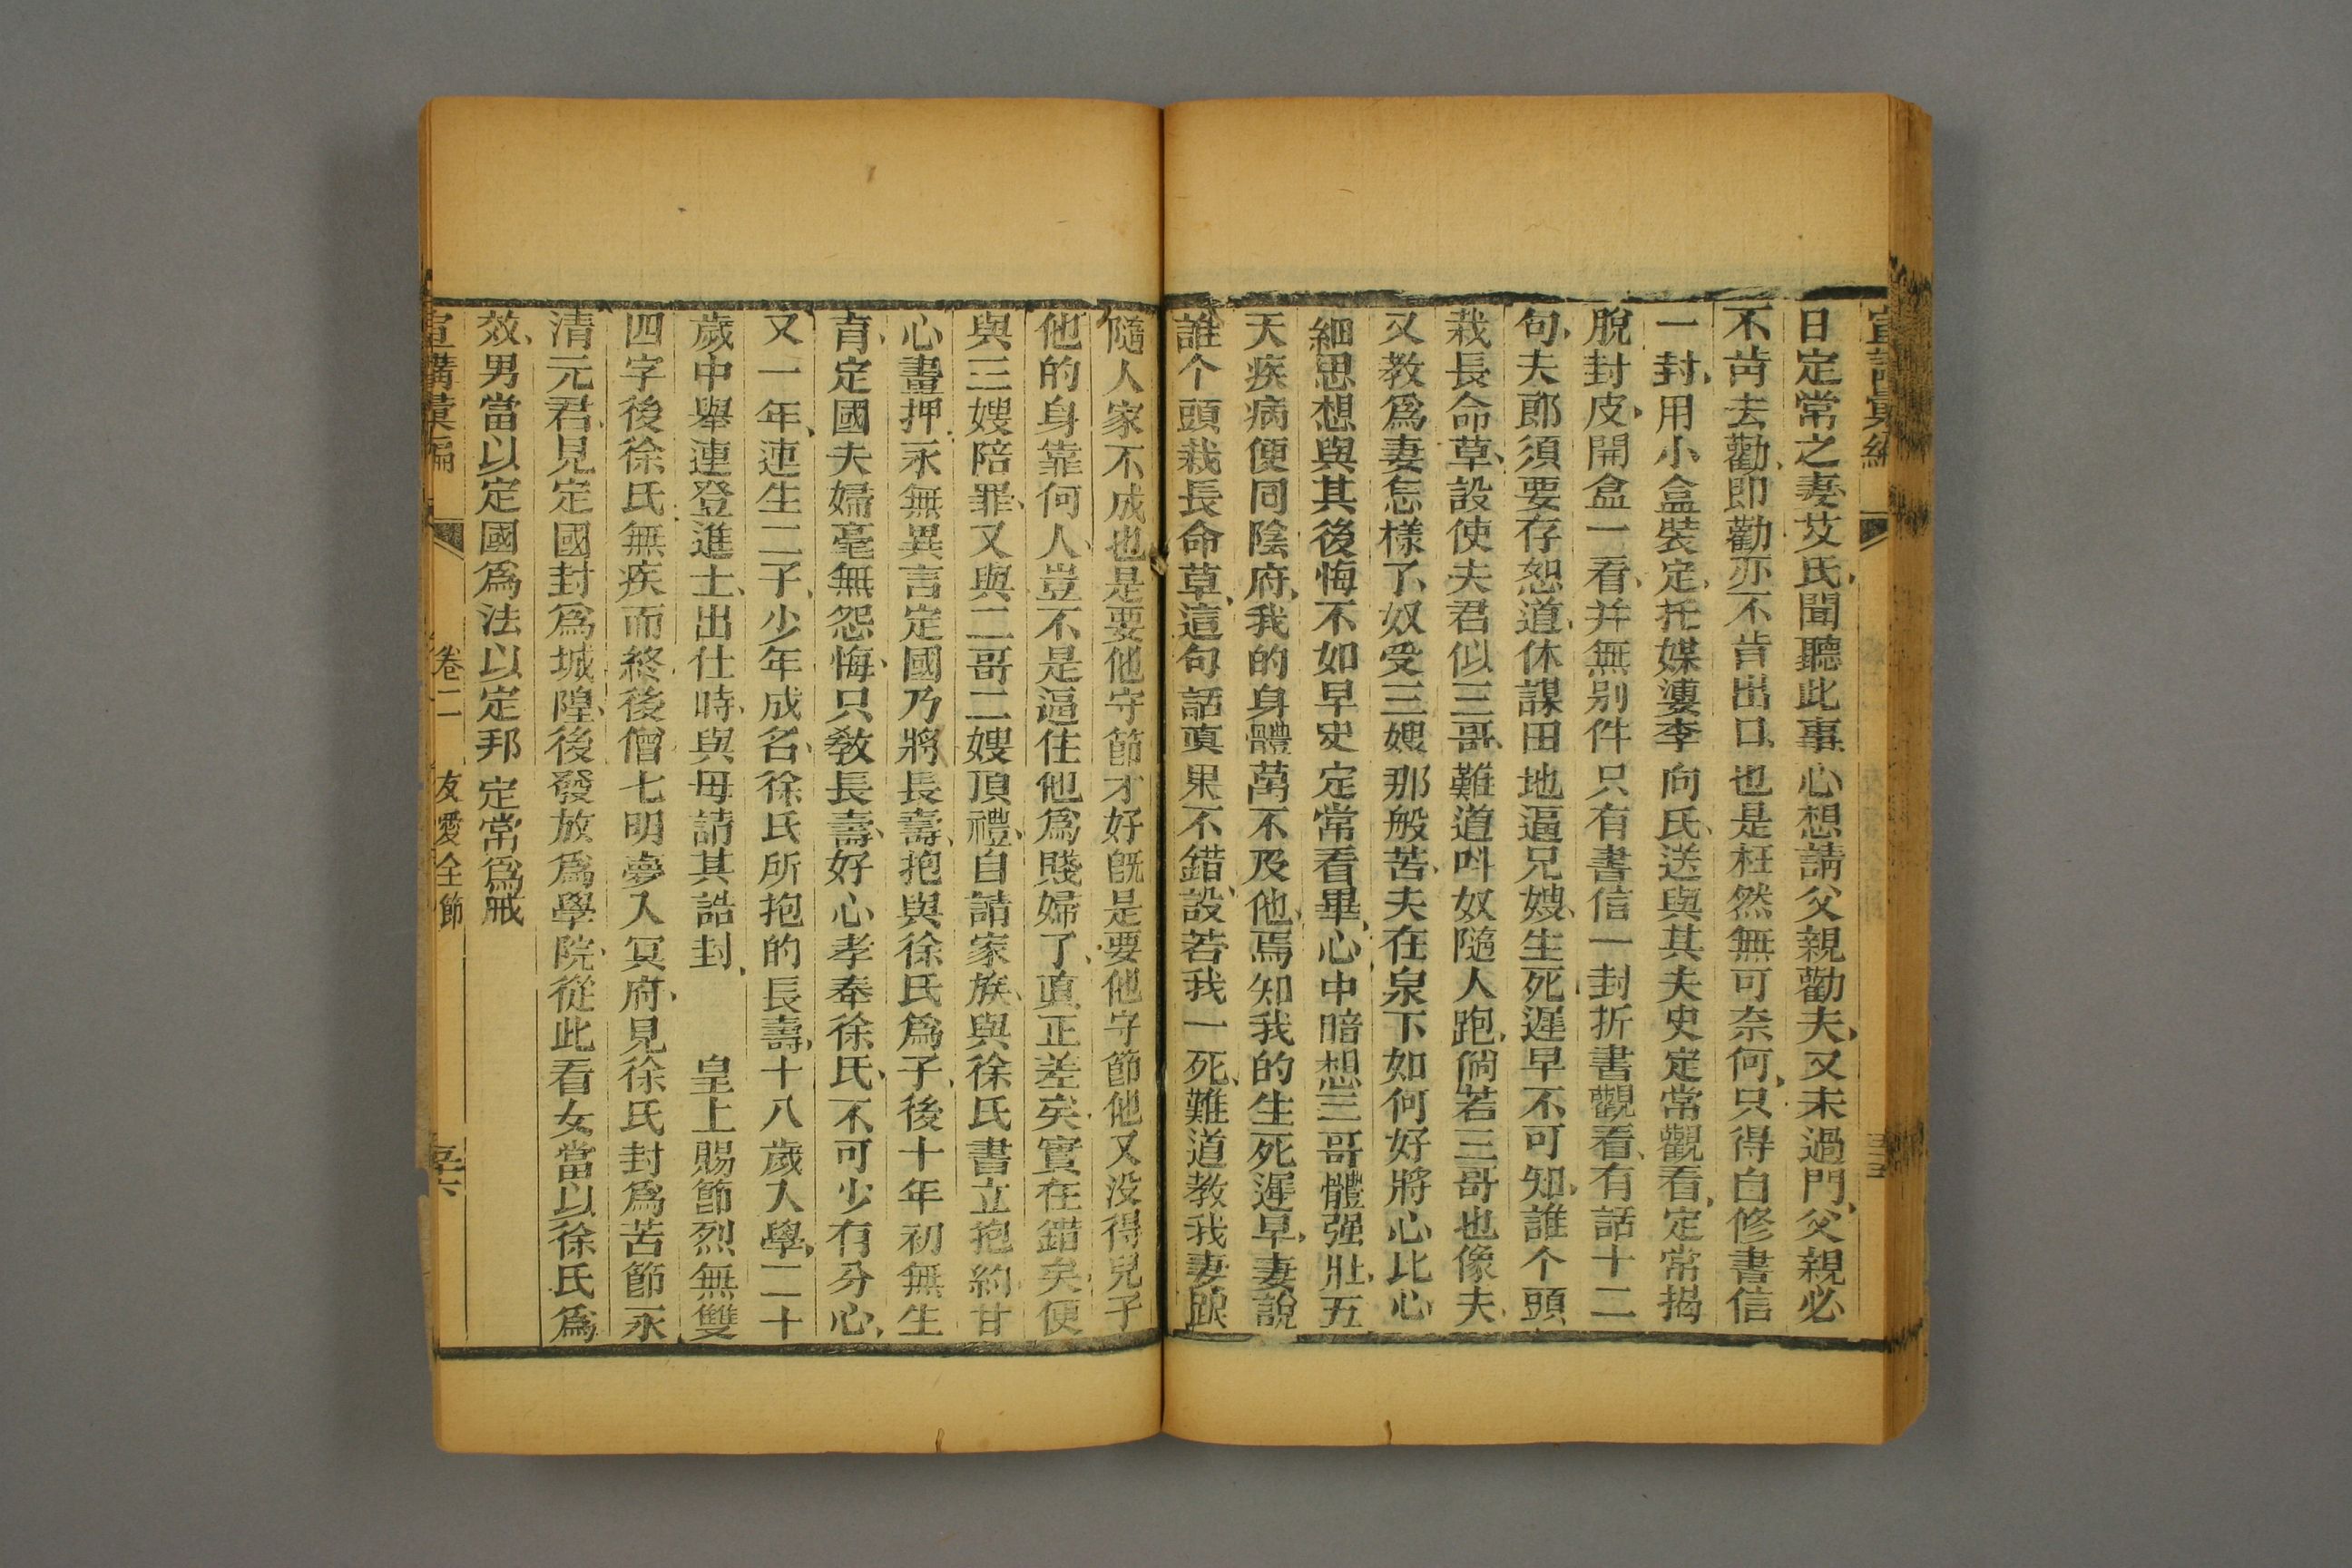 宣講彙編
日定常之妻艾氏聞聽此事心想請父親勸夫又未過門父親必
不肯去勸即勸亦不肯出口也是枉然無可奈何只得白修書信
一封用小盒裝定托媒婆李向氏送與其夫史定常觀看定常揭
脫封皮開盒一看并無別件只有書信一封折書觀看有話十二
句夫郎須要存恕道休謀田地逼兄嫂生死遲早不可知誰个頭
栽長命草設使夫君似三哥難道呌奴隨人跑倘若三哥也像夫
又教爲妻怎樣了奴受三嫂那般苦夫在泉下如何好將心比心
細思想與其後悔不如早史定常看畢心中暗想三哥體强壯五
天疾病便同陰府我的身體萬不及他焉知我的生死遲早妻說
誰个頭栽長命草這句話真果不錯設若我一死難道教我妻跟
隨人家不成也是要他守節才好旣是要他守節他又没得兒子
他的身靠何人豈不是逼住他爲賤婦了真正差矣實在錯矣便
與三嫂陪罪又與二哥二嫂頂禮自請家族與徐氏書立抱約甘
心畫押永無異言定國乃將長壽抱與徐氏爲子後十年初無生
育定國夫婦毫無怨悔只敎長壽好心孝奉徐氏不可少有分心
又一年連生二子少年成名徐氏所抱的長壽十八歲入學二十
歲中舉連登進士出仕時與母請其誥封 皇上賜節烈無雙
四字後徐氏無疾而終後僧七明夢入冥府見徐氏封爲苦節永
清元君見定國封爲城隍後發放爲學院從此看女當以徐氏爲
效男當以定國爲法以定邦 定常爲戒
宣講彙編 卷二 友愛全節 五十六